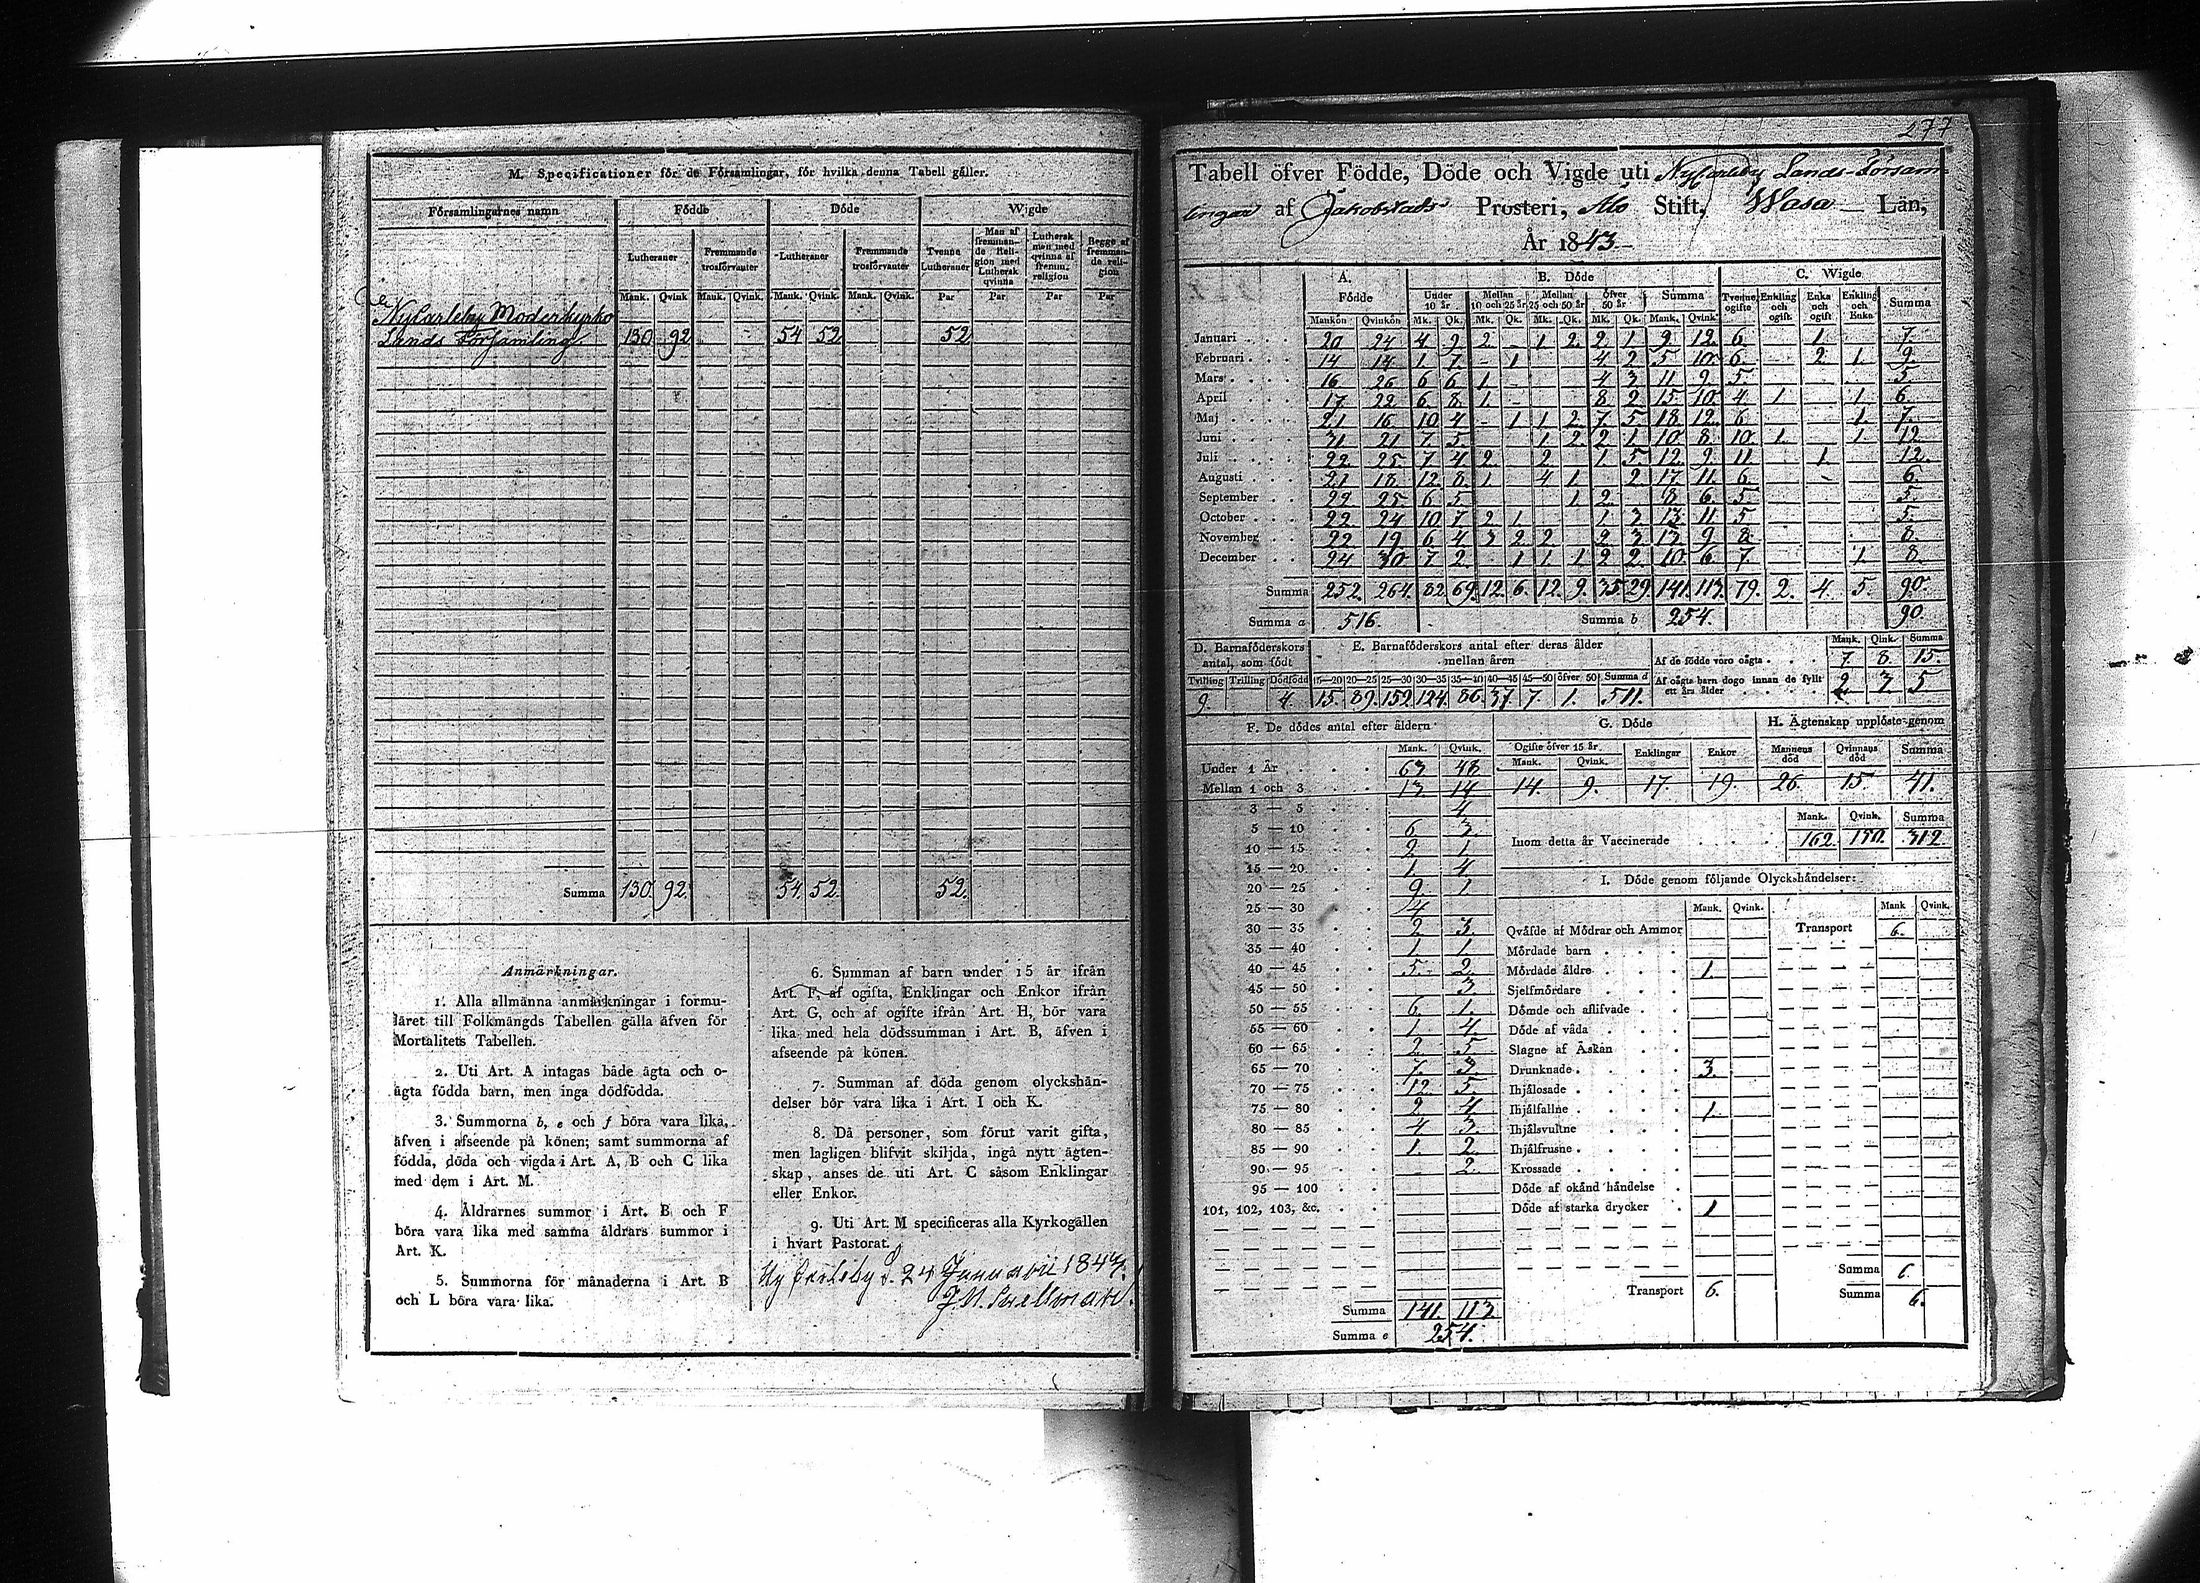 M. Specificationer för de Församlingar, för hvilka denna Tabell gäller.
Församlingarnes namn Födde Döde Wigde
Lutheraner Fremmande trosförvanter Lutheraner Fremmande trosförvanter Tvenne Lutheraner Man af fremmande Religion med Luthersk qvinna Luthersk man med qvinna af fremm. religion Begge af fremmande religion
Mank. Qvink Mank. Qvink. Mank. Qvink. Mank. Qvink. Par Par Par Par
NyCarleby Moderkyrko
Lands Församling 130 92 54 52 52
Summa 130. 92. 54. 52. 52.
Anmärkningar.
1. Alla allmänna anmärkningar i formu-
läret till Folkmängds Tabellen gälla äfven för
Mortalitets Tabellen.
2. Uti Art. A intagas både ägta och o-
ägta födda barn, men inga dödfödda.
3. Summorna b, e och f böra vara lika,
äfven i afseende på könen; samt summorna af
födda, döda och vigda i Art. A, B och C lika
med dem i Art. M.
4. Åldrarnes summor i Art. B och F
böra vara lika med samma åldrars summor i
Art. K.
5. Summorna för månaderna i Art. B
och L böra vara lika.
6. Summan af barn under 15 år ifrån
Art. F, af ogifta, Enklingar och Enkor ifrån
Art. G, och af ogifte ifrån Art. H, bör vara
lika med hela dödssumman i Art. B, äfven i
afseende på könen.
7. Summan af döda genom olyckshän-
delser bör vara lika i Art. I och K.
8. Då personer, som förut varit gifta,
men lagligen blifvit skiljda, ingå nytt ägten-
skap, anses de uti Art. C såsom Enklingar
eller Enkor.
9. Uti Art. M specificeras alla Kyrkogällen
i hvart Pastorat.
Ny Carleby d. 24 Januarii 1844.
277
Tabell öfver Födde, Döde och Vigde uti NyCarleby Lands-Försam-
lingar af Jakobstads Prosteri, Åbo Stift, Wasa Län,
År 1843.
A. Födde B. Döde C. Wigde
Under 10 år Mellan 10 och 25 år. Mellan 25 och 50 år Öfver 50 år Summa Tvenne ogifte Enkling och ogift Enka och ogift Enkling och Enka Summa
Mankön Qvinkön Mk. Qk. Mk. Qk. Mk. Qk. Mk. Qk. Mank. Qvink
Januari 20 24 4 9 2 - 1 2 2 1 9 12 6 1 7
Februari 14 14 1 7 - 1 4 2 5 10 6 2 1 9
Mars 16 26 6 6 1 4 3 11 9 5 5
April 17 22 6 8 1 8 2 15 10 4 1 1 6
Maj 21 16 10 4 - 1 1 2 7 5 18 12 6 1 7
Juni 31 21 7 5 1 2 2 1 10 8 10 1 1 12
Juli 22 25 7 4 2 2 1 5 12 9 11 1 12
Augusti 21 18 12 8 1 4 1 2 17 11 6 6
September 22 25 6 5 1 2 8 6 5 5
October 22 24 10 7 2 1 1 3 13 11 5 5
November 22 19 6 4 3 2 2 2 3 13 9 8 8
December 24 30 7 2 1 1 1 2 2 10 6 7 1 8
Summa 252. 264. 82 69. 12. 6. 12. 9. 35. 29 141. 113. 79. 2. 4. 5. 90.
Summa a 516. Summa b 254. 90.
D. Barnaföderskors antal, som födt
Tvilling Trilling Dödfödd
9. 4.
E. Barnaföderskors antal efter deras ålder mellan åren
15—20 20—25 25—30 30—35 35—40 40—45 45—50 öfver 50 Summa d
15. 89. 152 124. 86. 37 7. 1. 511.
Mank. Qink. Summa
Af de födde voro oägta 7. 8. 15.
Af oägta barn dogo innan de fyllt ett års ålder 2. 3 5
F. De dödes antal efter åldern
Mank. Qvink.
Under 1 År 63 48
Mellan 1 och 3 13 14
3 — 5 4
5 — 10 6 3
10 — 15 2 1
15 — 20 1 4
20 — 25 9 1
25 — 30 4
30 — 35 2 3
35 — 40 1 1
40 — 45 5 2
45 — 50 3
50 — 55 6 1
55 — 60 1 4
60 — 65 2 5
65 — 70 7 3
70 — 75 12 5
75 — 80 2 4
80 — 85 4 3
85 — 90 1 2
90 — 95 2
95 — 100
101, 102, 103, &c.
Summa 141. 113.
Summa e 254.
G. Döde
Ogifte öfver 15 år. Enklingar Enkor
Mank. Qvink.
14. 9. 17. 19.
H. Ägtenskap upplöste genom
Mannens död Qvinnans död Summa
26. 15. 41.
Mank. Qvink. Summa
Inom detta år Vaccinerade 162. 150. 312
I. Döde genom följande Olyckshändelser:
Mank. Qvink. Mank Qvink.
Qväfde af Mödrar och Ammor Transport 6.
Mördade barn
Mördade äldre 1.
Sjelfmördare
Dömde och aflifvade
Döde af våda
Slagne af Åskan
Drunknade 3.
Ihjälosade
Ihjälfallne 1.
Ihjälsvultne
Ihjälfrusne
Krossade
Döde af okänd händelse
Döde af starka drycker 1
Transport 6.
Summa 6.
Summa 6.